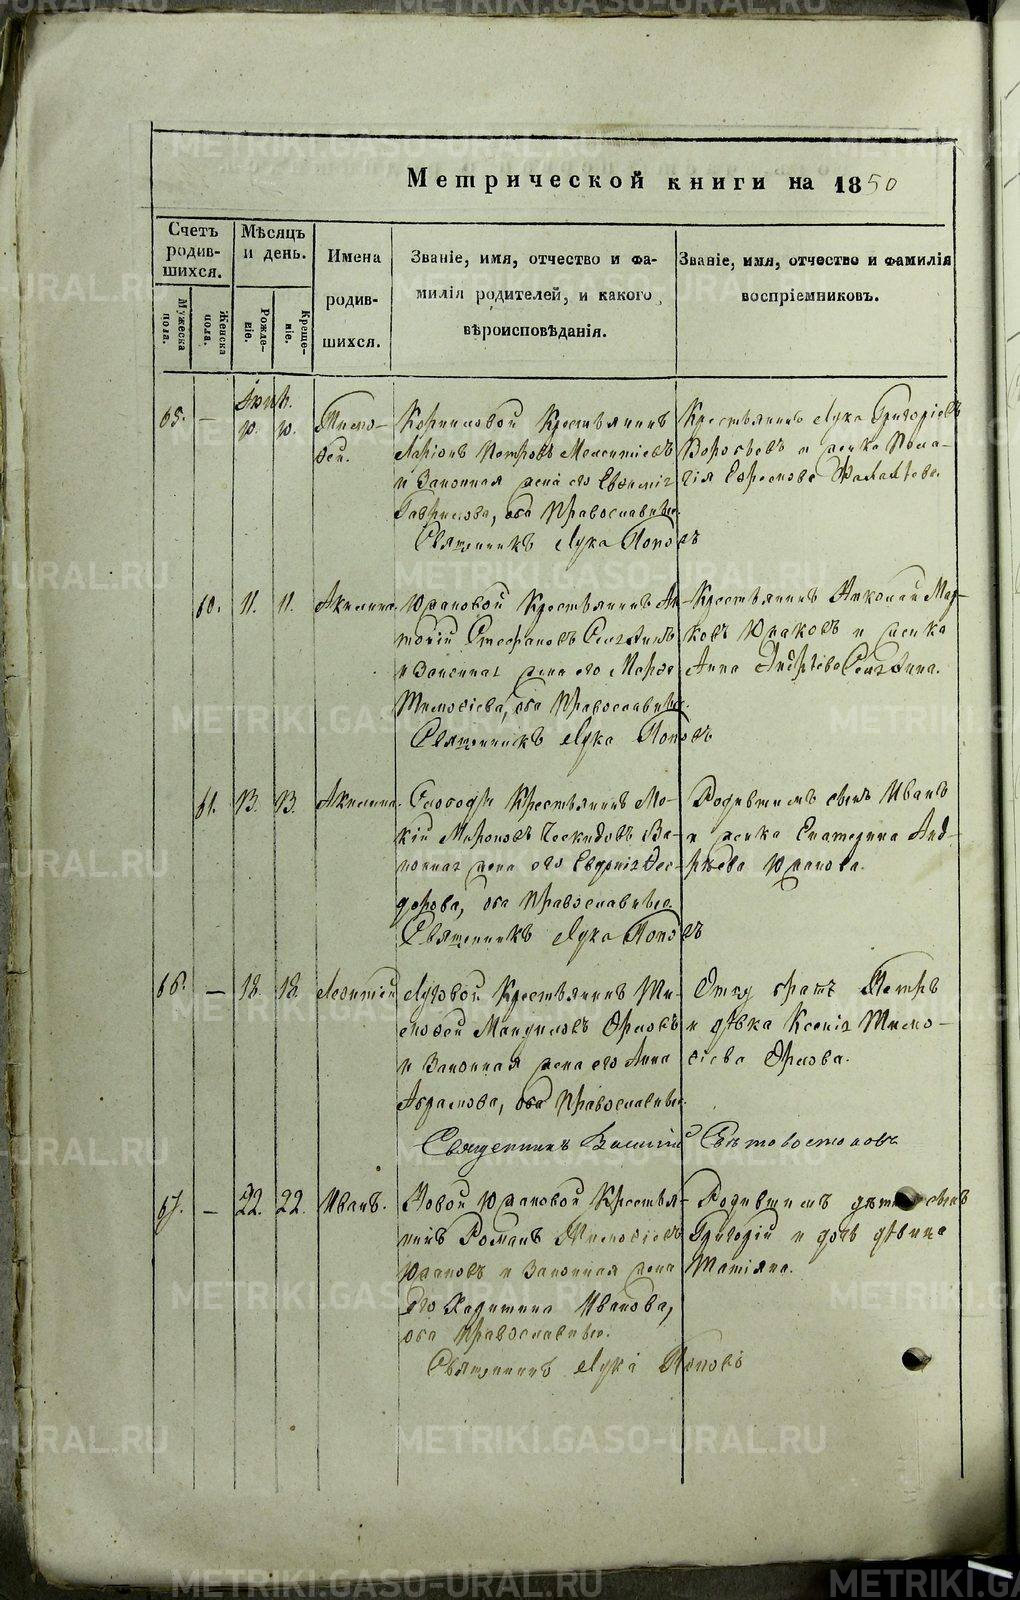 Метрической книги на 1850
Счетъ родив-шихся.
Мужеска пола.
Женска пола.
Мѣсяцъ и день.
Рожде-ніе.
Креще-ніе.
Имена родив-шихся.
Званіе, имя, отчество и фа-
милія родителей, и какого
вѣроисповѣданія.
Званіе, имя, отчество и фамилія
воспріемниковъ.
65. —
10. 10.
Тимо-
ѳей.
Крестьянинъ
Ларіонъ Петровъ
и Законная жена его Евѳимія
Гаврилова, оба Православные.
Священникъ Лука Поповъ
Крестьянинъ Лука Григорьевъ
и женка Пела-
гія Ефремова
60. 11. 11. Акилина.
Южаковой Крестьянинъ Ан-
тоній Стефановъ
и Законная жена его Марѳа
Тимоѳіева, оба Православные.
Священникъ Лука Поповъ
Крестьянинъ Николай Мар-
ковъ Южаковъ и женка
Анна Андрѣева
61. 13. 13. Акилина.
Слободы Крестьянинъ Мо-
кій Мироновъ За-
конная жена его Евдокія Ѳео-
дорова, оба Православные.
Священникъ Лука Поповъ
Родившимъ сынъ Иванъ
и женка Екатерина Анд-
рѣева Южакова.
66. — 18. 18. Леонтій
Луговой Крестьянинъ Ти-
моѳей Орловъ
и Законная жена его Анна
Абрамова, оба Православные.
Священникъ Василій Свѣтовостоковъ
Отцу братъ Петръ
и дѣвка Ксенія Тимо-
ѳіева Орлова.
67. — 22. 22. Иванъ.
Новой Южаковой Крестья-
нинъ Романъ Тимоѳіевъ
Южаковъ и Законная жена
его Харитина Иванова,
оба Православные.
Священникъ Лука Поповъ
Родившимъ дѣти сынъ
Григорій и дочь дѣвица
Татіяна.
METRIKI.GASO-URAL.RU